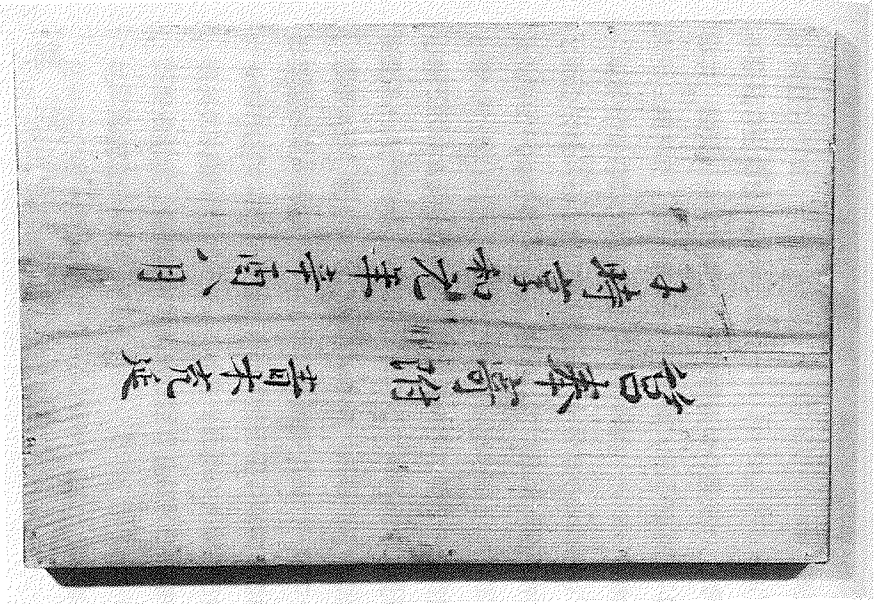 筥奉寄附 青木充延
于時享和元年辛酉八月